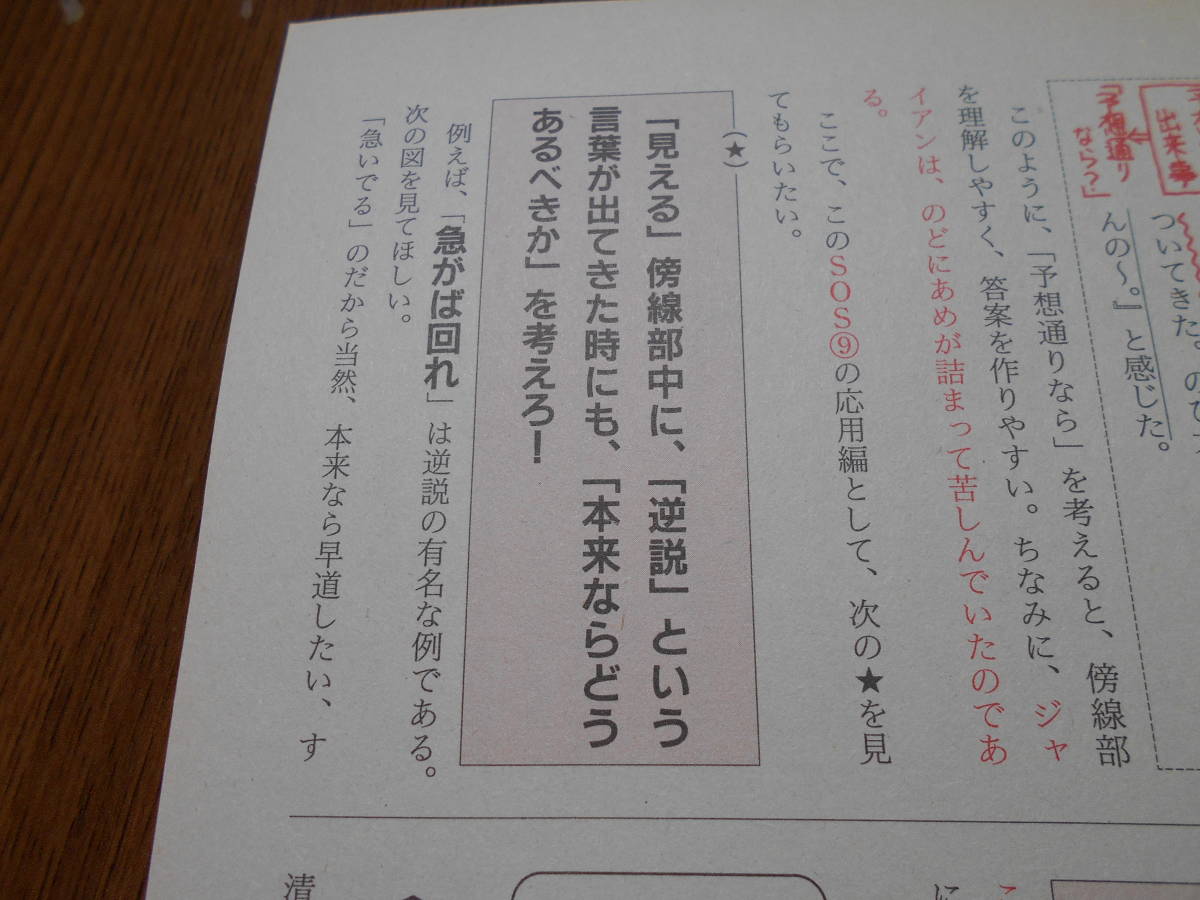 出来事
「予想通り
なら？」
ついてきた。のび
んの～。』と感じた。
このように、「予想通りなら」を考えると、傍線部
を理解しやすく、答案を作りやすい。ちなみに、ジャ
イアンは、のどにあめが詰まって苦しんでいたのであ
る。
ここで、このSOS⑨の応用編として、次の★を見
てもらいたい。
（★）
「見える」傍線部中に、「逆説」という
言葉が出てきた時にも、「本来ならどう
あるべきか」を考えろ！
例えば、「急がば回れ」は逆説の有名な例である。
次の図を見てほしい。
「急いでる」のだから当然、本来なら早道したい、す
こ
に
清